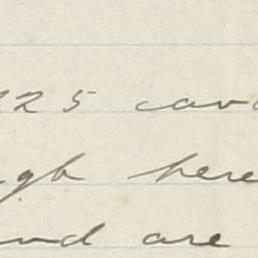 225 cava
ugh here
and are